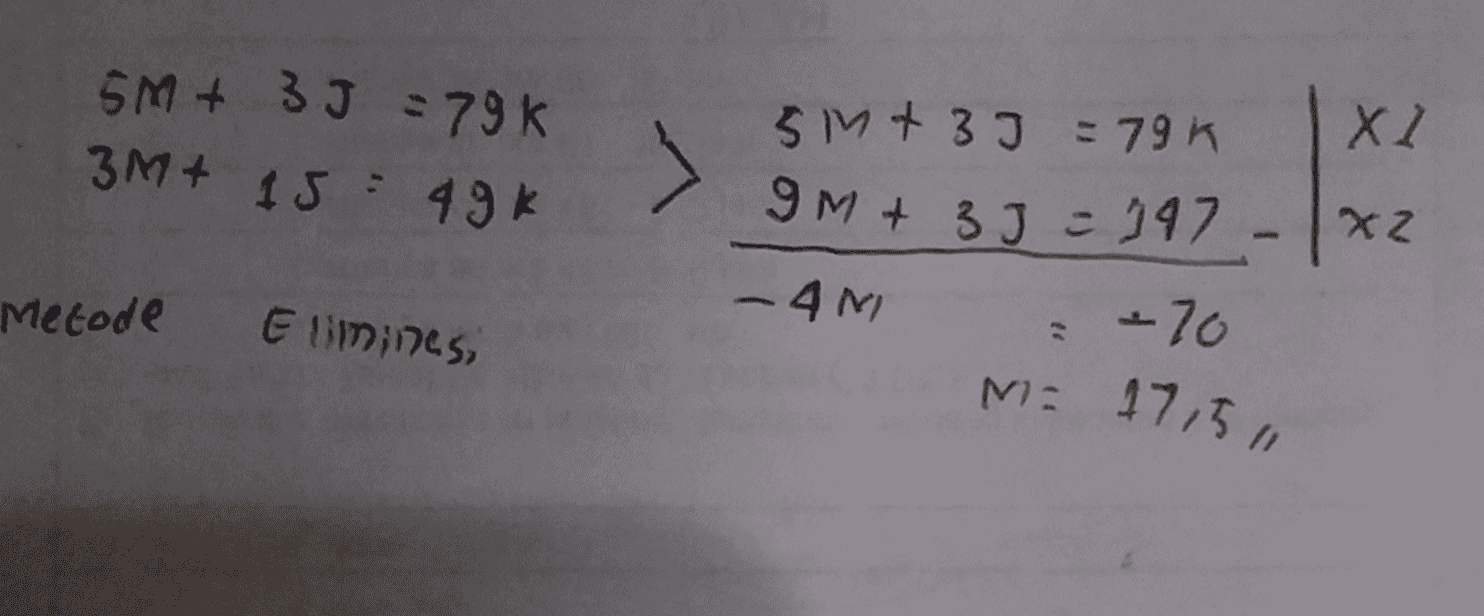 5M + 3J = 79K
3M + 1J = 49K
> 5M + 3J = 79K | X1
9M + 3J = 147 - | X2
-4M = -70
M = 17,5 //
Metode Eliminasi